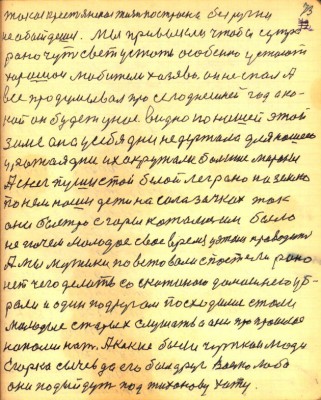 73
такая крестьянская жизнь построина без ругни
необайдешся. Мы привыкли чтоб и сутра
рано чуть свет устоть особенно у
хароший любители хазява он не спал А
все продумывал про сегоднешней год ско-
кой он будет уже видно по нашей этой
зиме она у себя дни не держала для нашево
их окружали большие марозы
А снег пушистой белой лег рано на землю
по нем наши дети на салазачках так
они быстро с горы каталом им было
не почем молодое свое время умели праводить
А мы мужики повставали с пастели рано
нет чего делать со скотиною домашнего уб-
рали и один подругом посходились стали
молодые старых слушать а они про прошлое
началом нам. А какие были чуткаи люди
Старка сычев да его был друг Васко лоба
они подыйдут под тихонову хату.